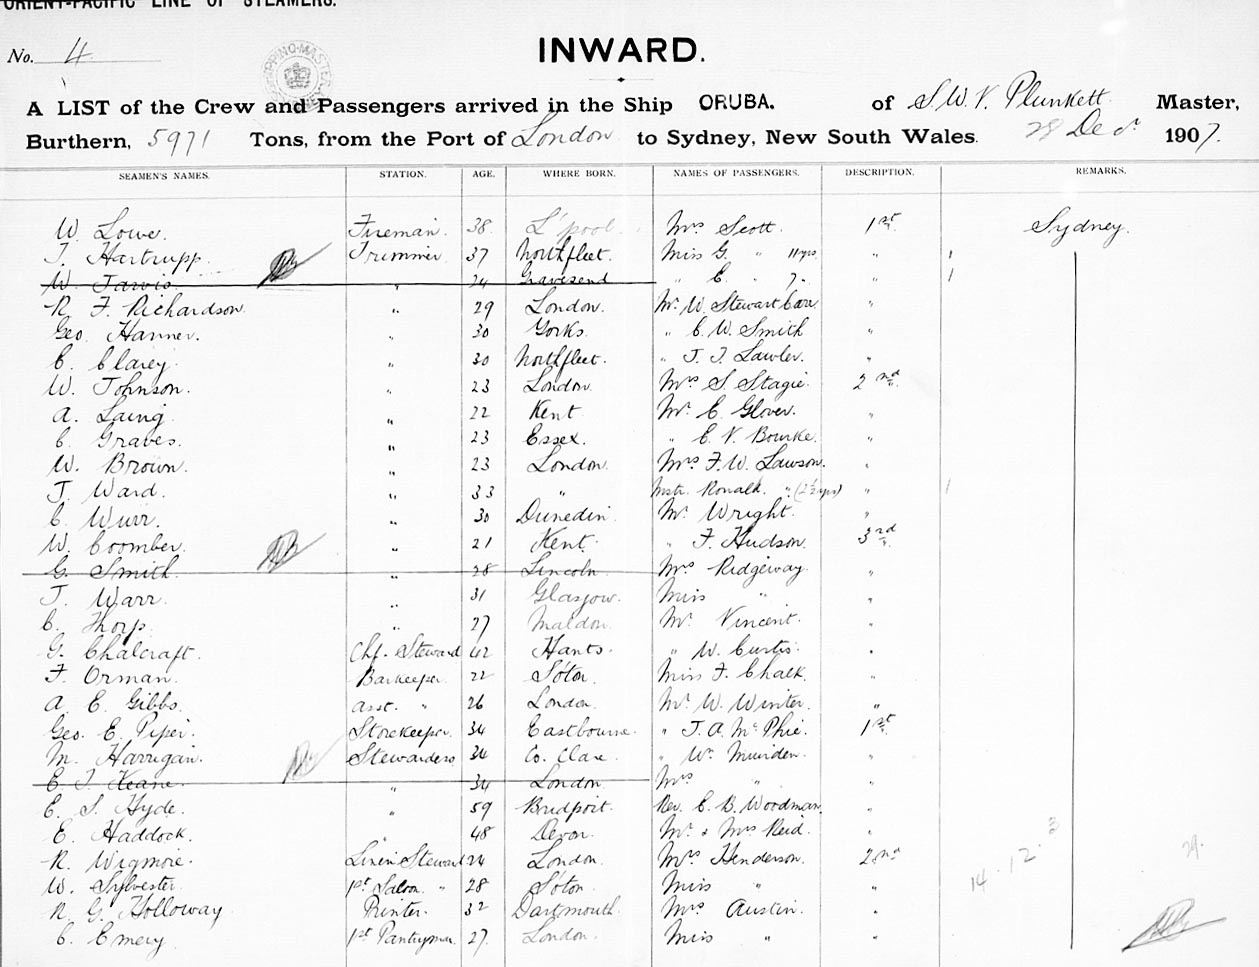 ORIENT-PACIFIC LINE OF STEAMERS.
No. 4
INWARD.
A LIST of the Crew and Passengers arrived in the Ship ORUBA. of S.W.V. Plunkett Master,
Burthern, 5971 Tons, from the Port of London to Sydney, New South Wales. 28 Decr 1907.
SEAMEN'S NAMES. STATION. AGE. WHERE BORN. NAMES OF PASSENGERS. DESCRIPTION. REMARKS.
W. Lowe. Fireman. 38. L'pool. Mrs Scott. 1st Sydney.
T. Hartrupp. Trimmer 37 Northfleet. Miss G. " 11yrs. " 1
W. Jarvis. " 24 Gravesend " E " 7. " 1
R. F. Richardson " 29 London. Mr. W. Stewart Carr. "
Geo. Hanner. " 30 Yorks. " C. W. Smith "
C. Clarey. " 30 Northfleet. " J. J. Lawler. "
W. Johnson. " 23 London. Mrs S. Stagie. 2nd
A. Laing. " 22 Kent Mr. C. Glover. "
C. Graves. " 23 Essex. " E. V. Bourke. "
W. Brown. " 23 London. Mrs F. W. Lawson. "
J. Ward. " 33 " Mstr. Ronald. " (2½yrs) " 1
C. Wurr. " 30 Dunedin. Mr. Wright. "
W. Coomber. " 21 Kent. " F. Hudson. 3rd
G. Smith. " 28 Lincoln. Mrs Ridgeway. "
J. Warr. " 31 Glasgow. Miss " "
C. Thorp. " 27 Maldon. Mr. Vincent. "
G. Chalcraft. Chf. Steward 42 Hants. " W. Curtis. "
F. Orman. Barkeeper. 22 S'oton. Miss F. Chalk. "
A. E. Gibbs. Asst. " 26 London. Mr. W. Winter. "
Geo. E. Piper. Storekeeper. 34 Eastbourne. " J. A. McPhie. 1st
M. Harrigan. Stewardess 34 Co. Clare. " Wm. Muirden. "
E. J. Keane. " 34 London. Mrs " "
E. S. Hyde. " 59 Bridport. Rev. C. B. Woodman. "
E. Haddock. " 48 Devon. Mr. & Mrs Reid. "
R. Wigmore. Linen Steward 24 London. Mrs Henderson. 2nd
W. Sylvester. 1st Saloon. " 28 S'oton. Miss " "
R. G. Holloway Printer. 32 Dartmouth. Mrs Austin. "
C. Emery 1st Pantryman. 27. London. Miss " "
14. 12. 3
29.